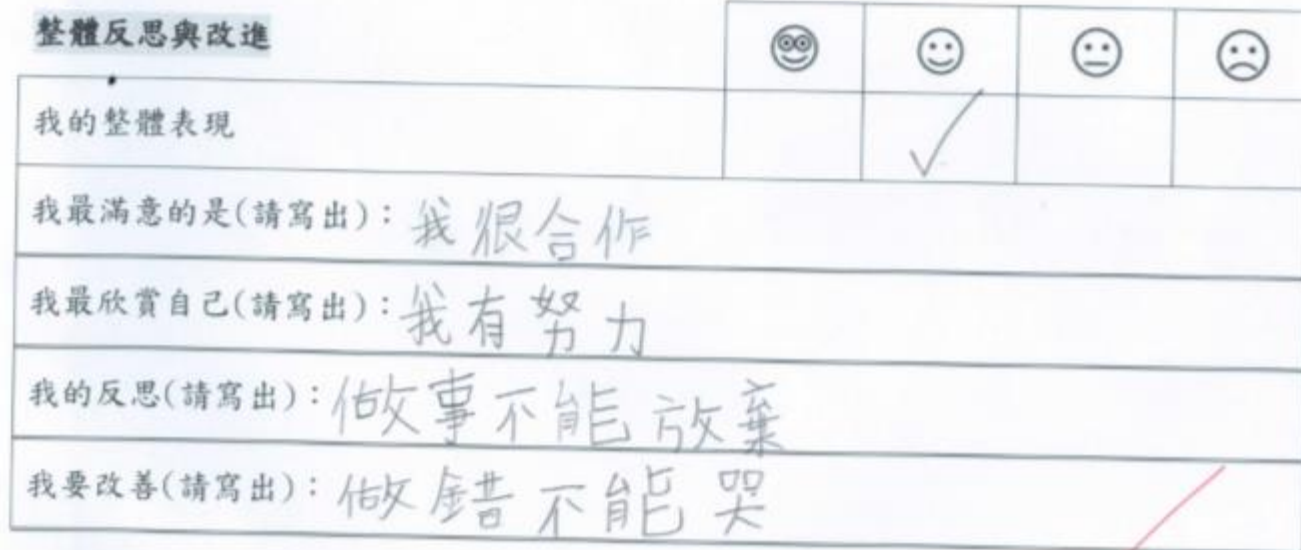 整體反思與改進
我的整體表現
我最滿意的是(請寫出)：我很合作
我最欣賞自己(請寫出)：我有努力
我的反思(請寫出)：做事不能放棄
我要改善(請寫出)：做錯不能哭